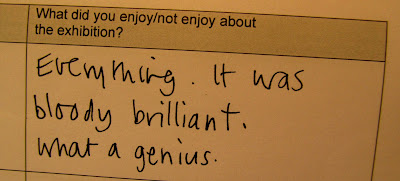 What did you enjoy/not enjoy about
the exhibition?
Everything. It was
bloody brilliant.
What a genius.